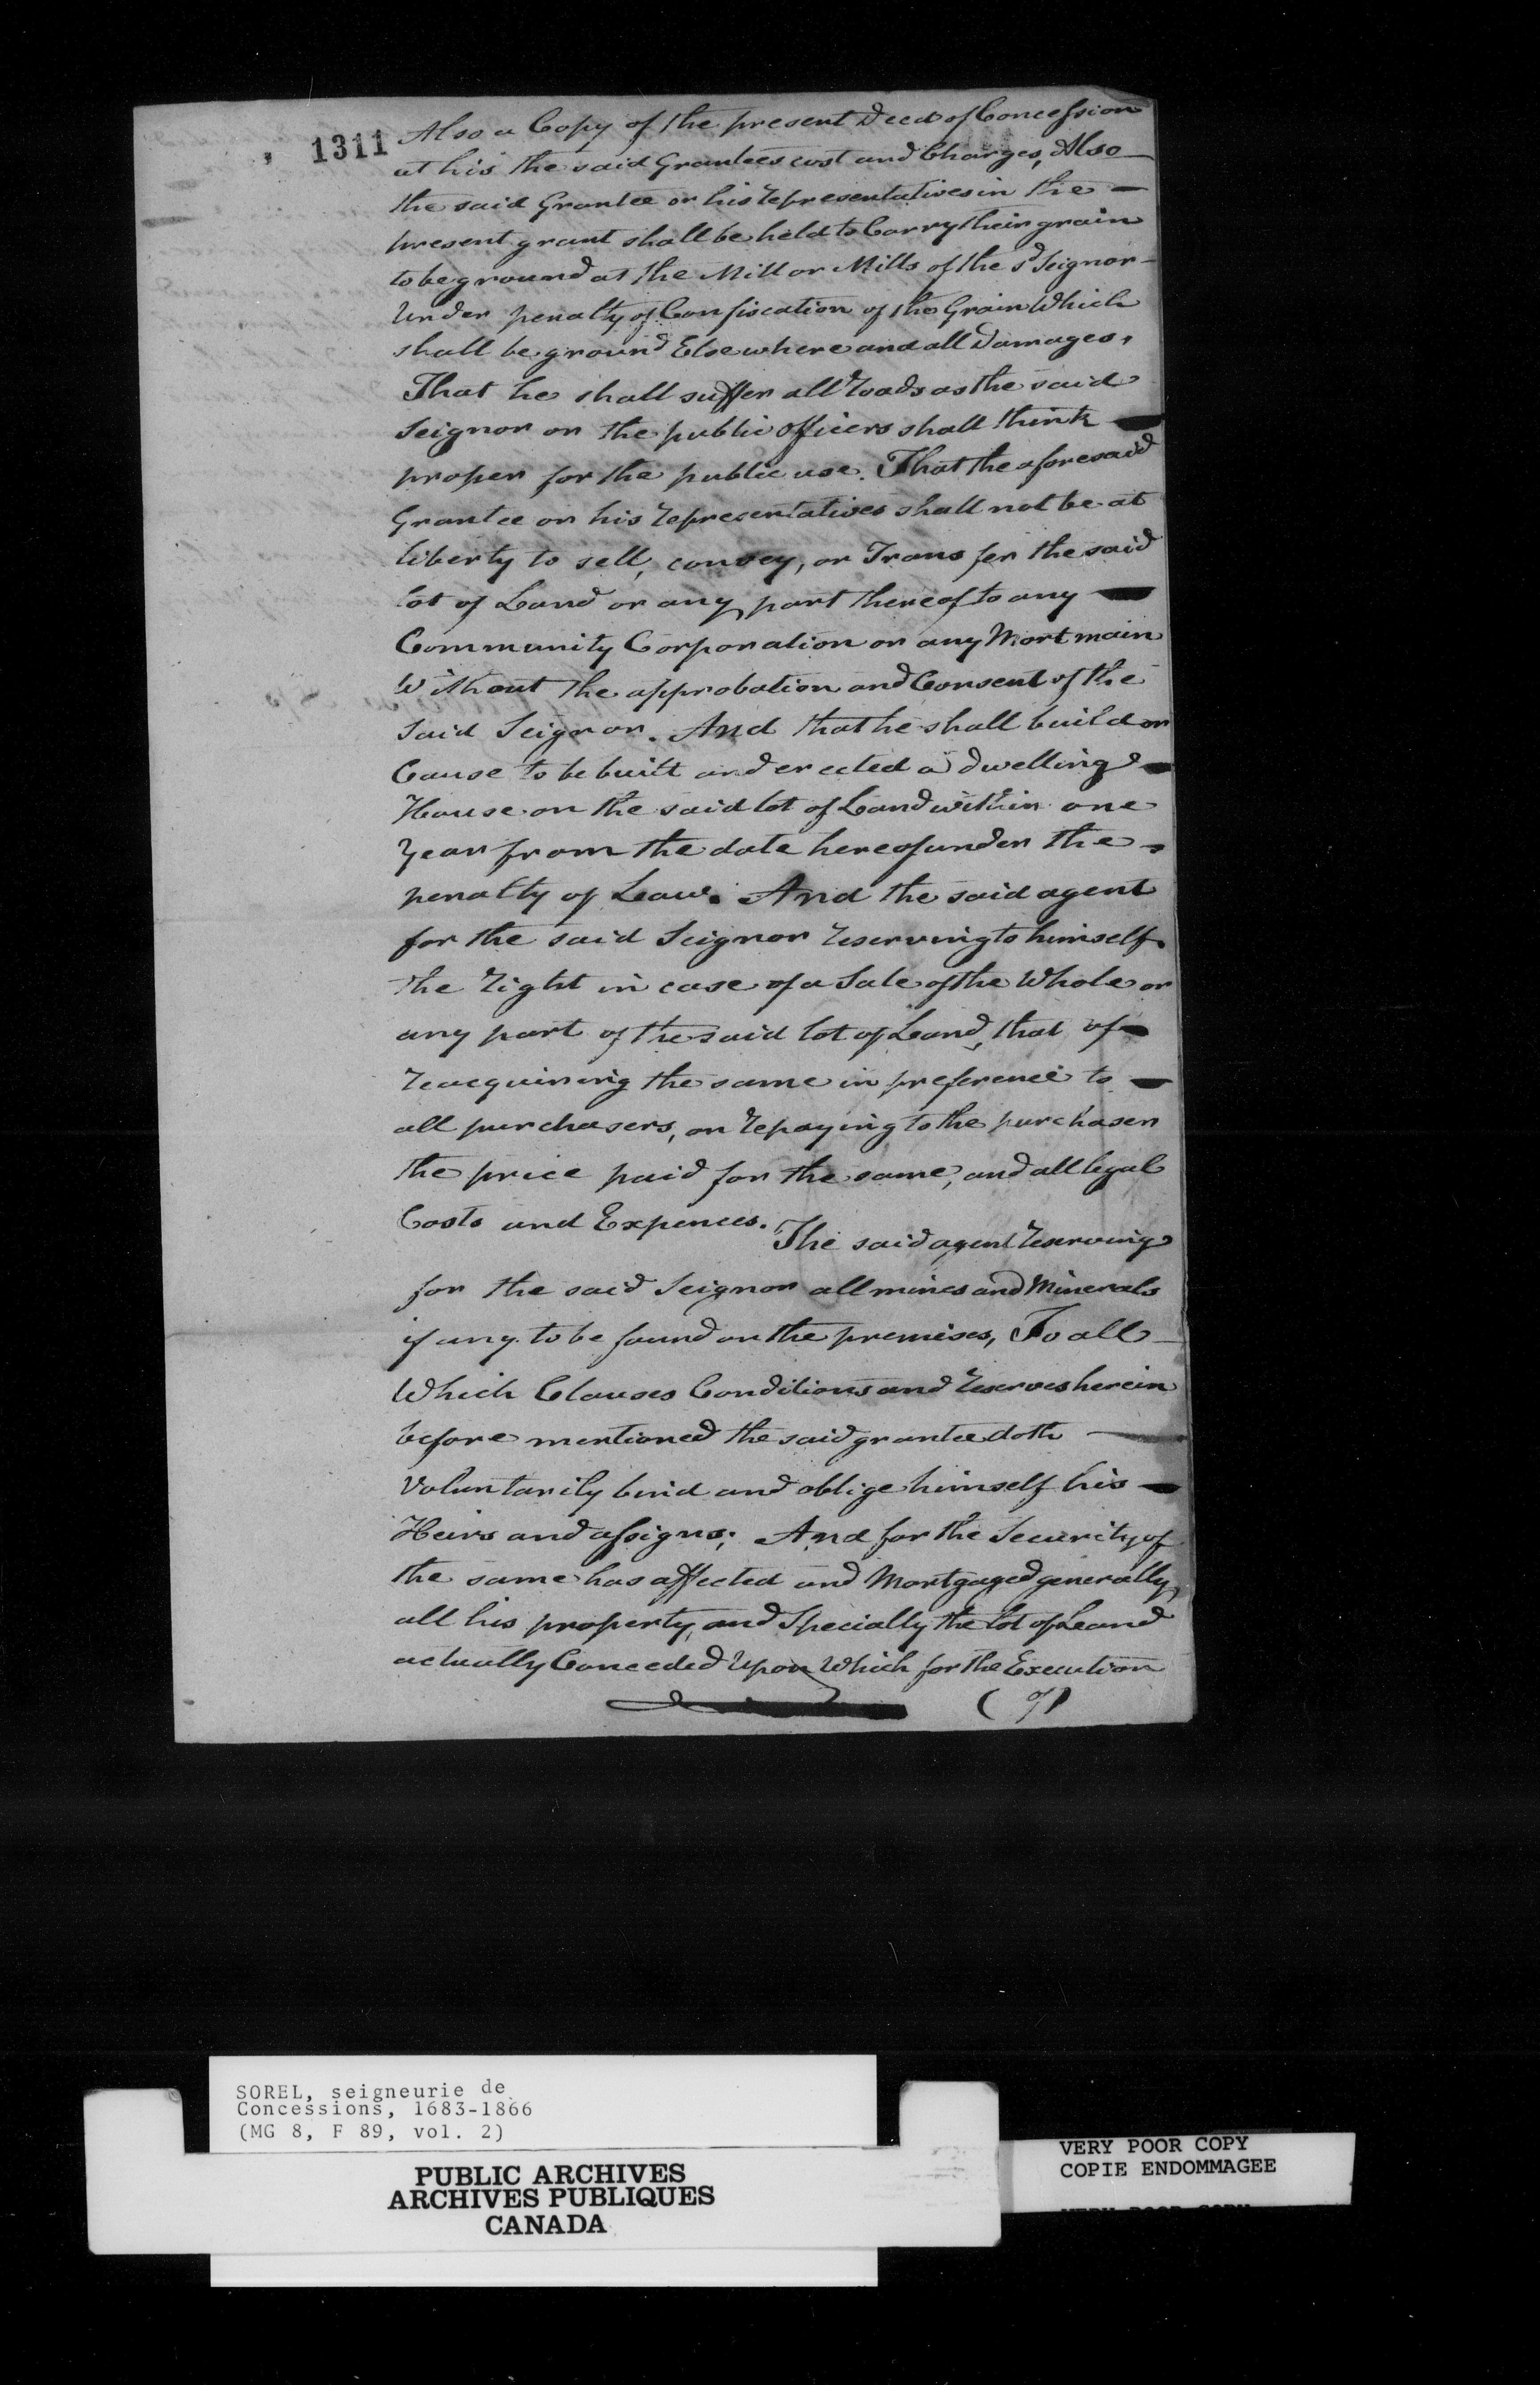 1311
Also a Copy of the present Deed of Concession
at his the said Grantees cost and Charges, Also
the said Grantee or his representatives in the
present grant shall be held to Carry their grain
to be ground at the Mill or Mills of the sd Seignor
Under penalty of Confiscation of the Grain Which
shall be ground Elsewhere and all Damages,
That he shall suffer all roads as the said
Seignor or the public officers shall think
proper for the public use. That the aforesaid
Grantee or his representatives shall not be at
liberty to sell, convey, or Transfer the said
lot of Land or any part thereof to any
Community Corporation or any Mortmain
Without the approbation and Consent of the
Said Seignor. And that he shall build or
Cause to be built and erected a dwelling
House on the said lot of Land within one
year from the date hereof under the
penalty of Law. And the said agent
for the said Seignor reserving to himself
the right in case of a Sale of the Whole or
any part of the said lot of Land, that of
reacquiring the same in preference to
all purchasers, on repaying to the purchaser
the price paid for the same, and all legal
Costs and Expences. The said agent reserving
for the said Seignor all mines and Minerals
if any to be found on the premises, To all
Which Clauses Conditions and reserves herein
before mentioned the said grantee doth
Voluntarily bind and oblige himself his
Heirs and assigns; And for the Security of
the same has affected and Mortgaged generally,
all his property, and Specially the lot of Land
actually Conceded Upon Which for the Execution
(of)
SOREL, seigneurie de
Concessions, 1683-1866
(MG 8, F 89, vol. 2)
PUBLIC ARCHIVES
ARCHIVES PUBLIQUES
CANADA
VERY POOR COPY
COPIE ENDOMMAGEE
VERY POOR COPY